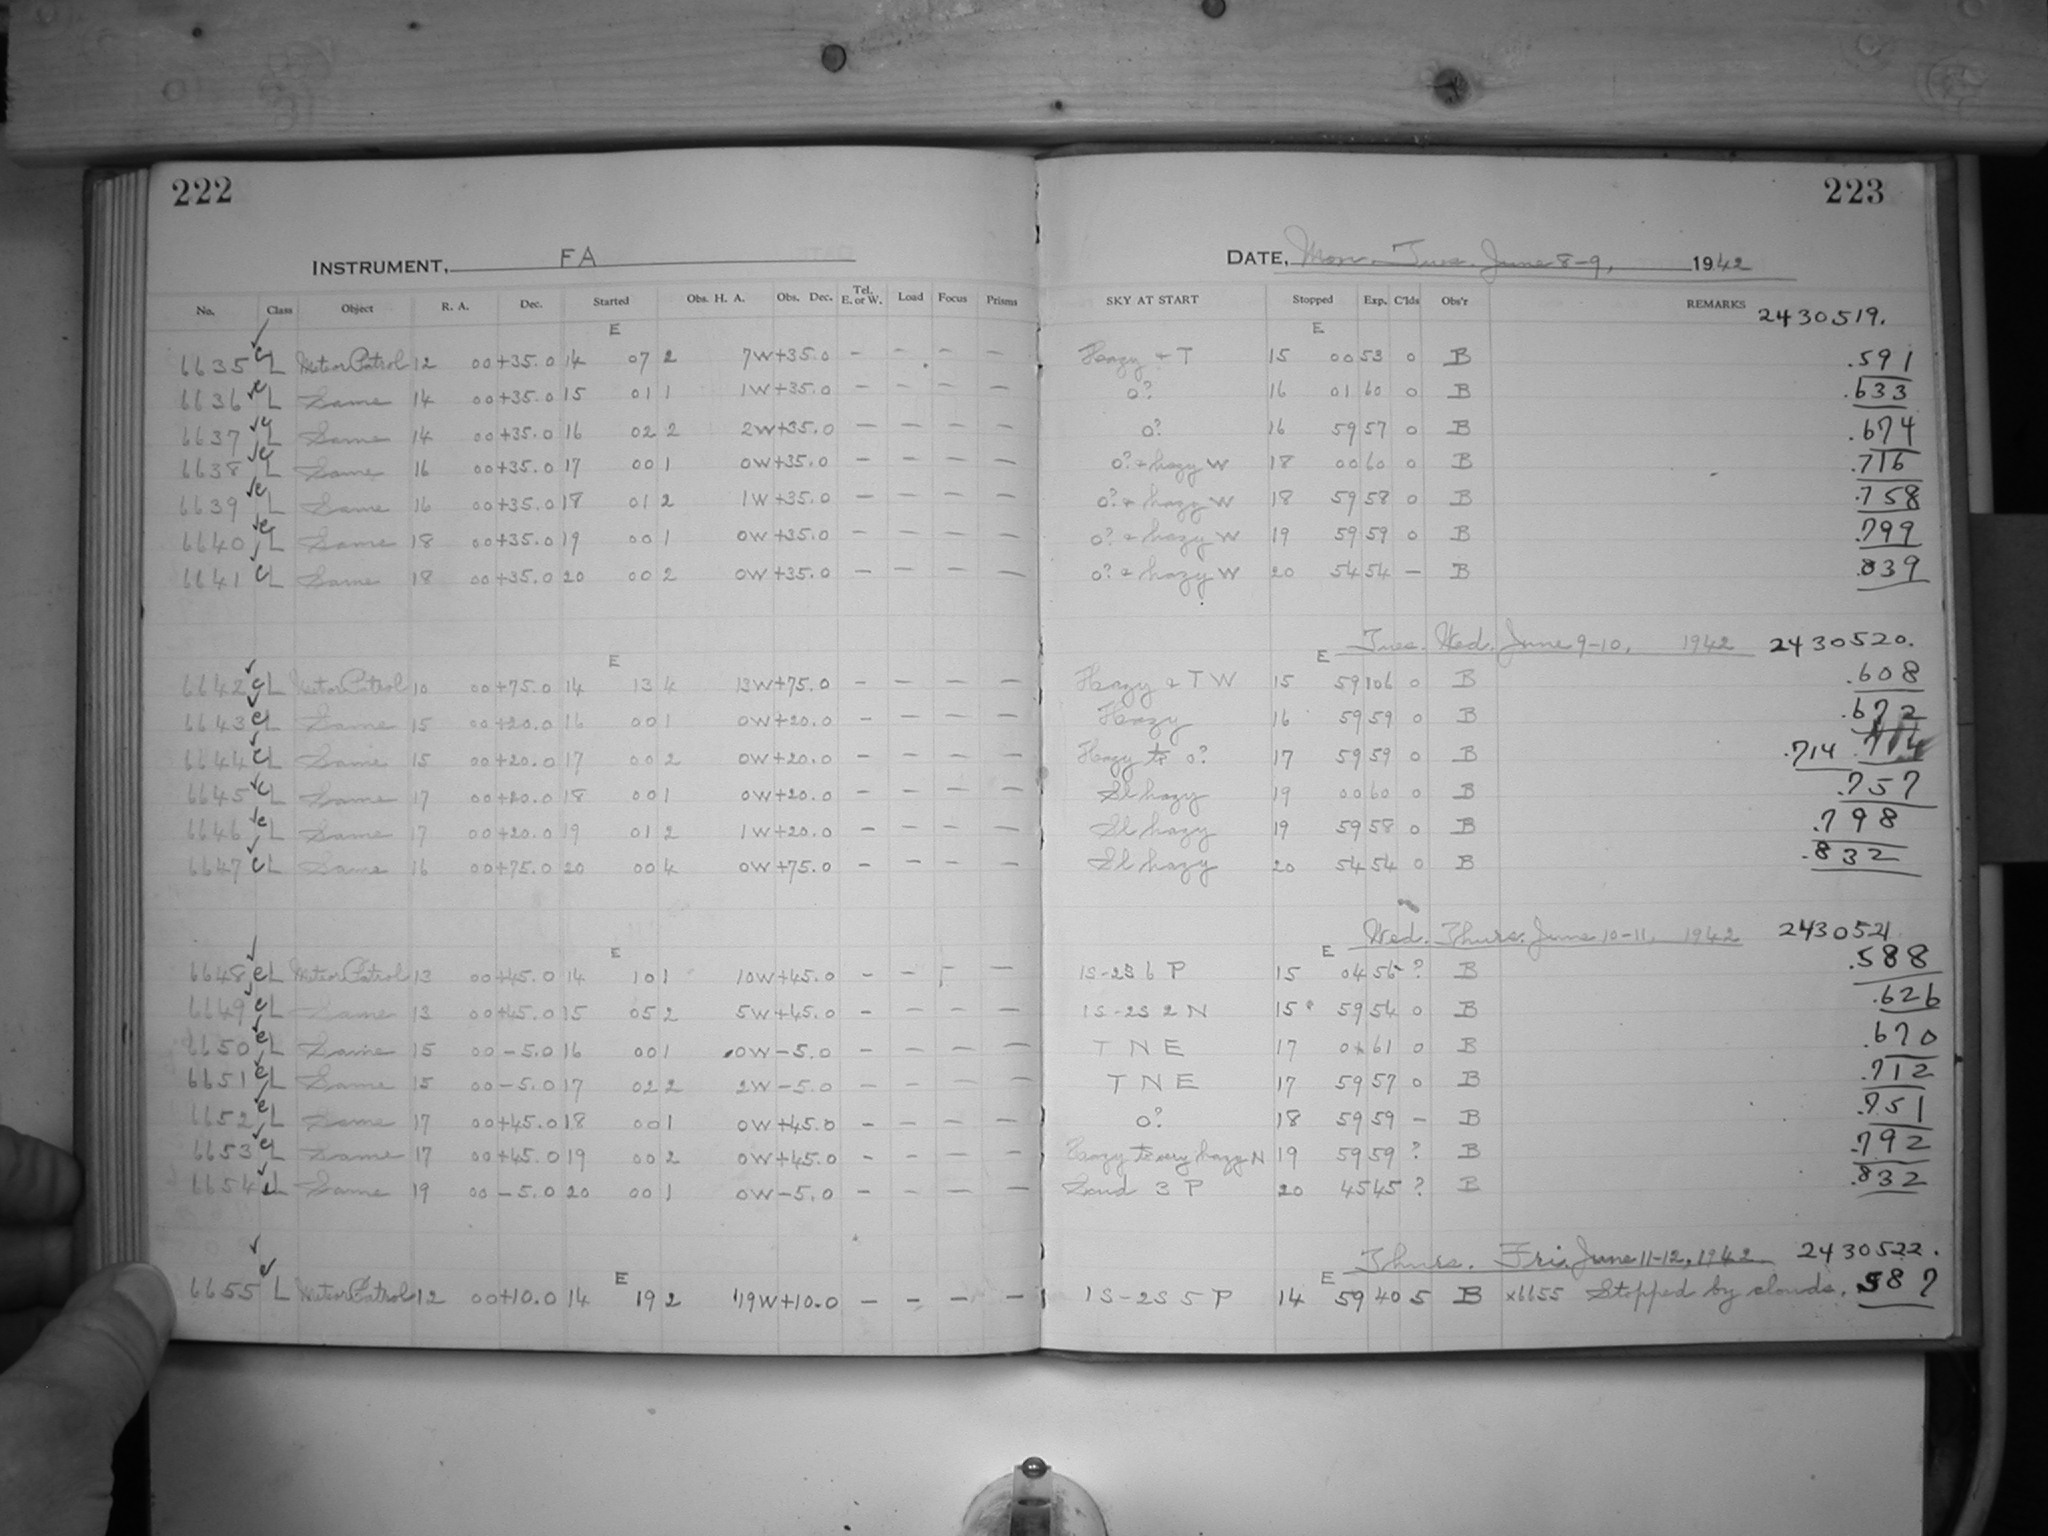 222
223
INSTRUMENT, FA
DATE, Mon. Tues. June 8-9, 1942
No. Class Object R. A. Dec. Started Obs. H. A. Obs. Dec. Tel. E. or W. Load Focus Prisms SKY AT START Stopped Exp. C'lds Obs'r REMARKS 2430519.
E E
6635 c L Meteor Patrol 12 00 +35.0 14 07 2 7W +35.0 - - - - Hazy + T 15 00 53 0 B .591
6636 e L Same 14 00 +35.0 15 01 1 1W +35.0 - - - - 0? 16 01 60 0 B .633
6637 e L Same 14 00 +35.0 16 02 2 2W +35.0 - - - - 0? 16 59 57 0 B .674
6638 e L Same 16 00 +35.0 17 00 1 0W +35.0 - - - - 0? + hazy W 18 00 60 0 B .716
6639 e L Same 16 00 +35.0 18 01 2 1W +35.0 - - - - 0? + hazy W 18 59 58 0 B .758
6640 e L Same 18 00 +35.0 19 00 1 0W +35.0 - - - - 0? + hazy W 19 59 59 0 B .799
6641 c L Same 18 00 +35.0 20 00 2 0W +35.0 - - - - 0? + hazy W 20 54 54 - B .839
Tues. Wed. June 9-10, 1942 2430520.
E E
6642 c L Meteor Patrol 10 00 +75.0 14 13 4 13W +75.0 - - - - Hazy + T W 15 59 106 0 B .608
6643 e L Same 15 00 +20.0 16 00 1 0W +20.0 - - - - Hazy 16 59 59 0 B .672
6644 c L Same 15 00 +20.0 17 00 2 0W +20.0 - - - - Hazy to 0? 17 59 59 0 B .714 .714
6645 c L Same 17 00 +20.0 18 00 1 0W +20.0 - - - - Sl hazy 19 00 60 0 B .757
6646 e L Same 17 00 +20.0 19 01 2 1W +20.0 - - - - Sl hazy 19 59 58 0 B .798
6647 c L Same 16 00 +75.0 20 00 4 0W +75.0 - - - - Sl hazy 20 54 54 0 B .832
Wed. Thurs. June 10-11, 1942 2430521.
E E
6648 e L Meteor Patrol 13 00 +45.0 14 10 1 10W +45.0 - - - - 1S-2S 6 P 15 04 56 ? B .588
6649 e L Same 13 00 +45.0 15 05 2 5W +45.0 - - - - 1S-2S 2 N 15 59 54 0 B .626
6650 e L Same 15 00 -5.0 16 00 1 0W -5.0 - - - - T N E 17 01 61 0 B .670
6651 e L Same 15 00 -5.0 17 02 2 2W -5.0 - - - - T N E 17 59 57 0 B .712
6652 e L Same 17 00 +45.0 18 00 1 0W +45.0 - - - - 0? 18 59 59 - B .751
6653 e L Same 17 00 +45.0 19 00 2 0W +45.0 - - - - Hazy to very hazy N 19 59 59 ? B .792
6654 e L Same 19 00 -5.0 20 00 1 0W -5.0 - - - - 3 P 20 45 45 ? B .832
Thurs. Fri. June 11-12, 1942 2430522.
E E
6655 e L Meteor Patrol 12 00 +10.0 14 19 2 19W +10.0 - - - - 1S-2S 5 P 14 59 40 5 B ×6655 Stopped by clouds. .587